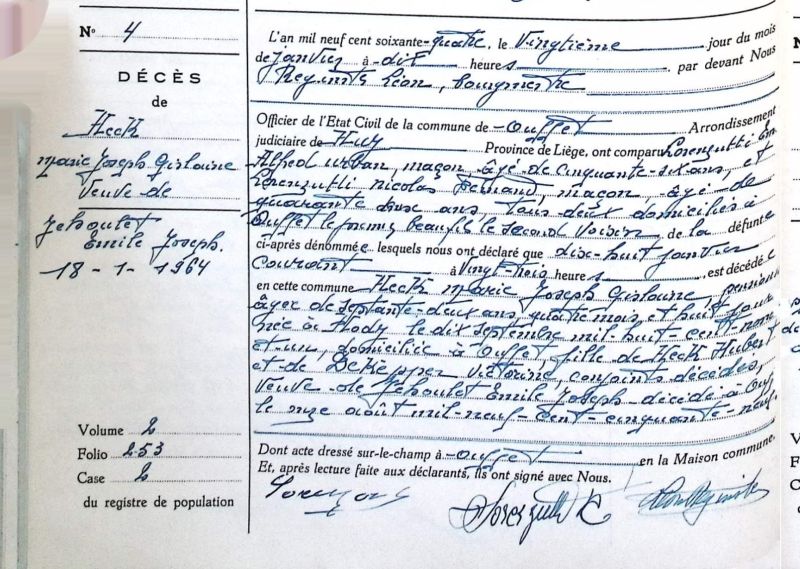 N° 4
DÉCÈS
de
Heck
Marie Joseph Gislaine
Veuve de
Jehoulet
Emile Joseph.
18 - 1 - 1964
Volume 2
Folio 253
Case 2
du registre de population
L'an mil neuf cent soixante-quatre, le vingtième jour du mois
de janvier à dix heures par devant Nous
Léon, bourgmestre
Officier de l'Etat Civil de la commune de Ouffet Arrondissement
judiciaire de Huy Province de Liège, ont comparu Lorenzutti
Alfred Urban, maçon âgé de cinquante-six ans, et
Lorenzutti Nicolas Fernand, maçon âgé de
quarante ans tous deux domiciliés à
Ouffet le premier beaufils le second voisin de la défunte
ci-après dénommée lesquels nous ont déclaré que dix-huit janvier
courant à vingt-trois heures, est décédée
en cette commune Heck Marie Joseph Gislaine,
âgée de septante-deux ans, quatre mois et huit jour
née à Hody le dix septembre mil huit cent
et-un, domiciliée à Ouffet fille de Heck Hubert
et de Victorine, conjoints décédés,
Veuve de Jehoulet Emile Joseph décédé à Ouf
le onze août mil-neuf-cent-cinquante-neuf.
Dont acte dressé sur-le-champ à Ouffet en la Maison commune.
Et, après lecture faite aux déclarants, ils ont signé avec Nous.